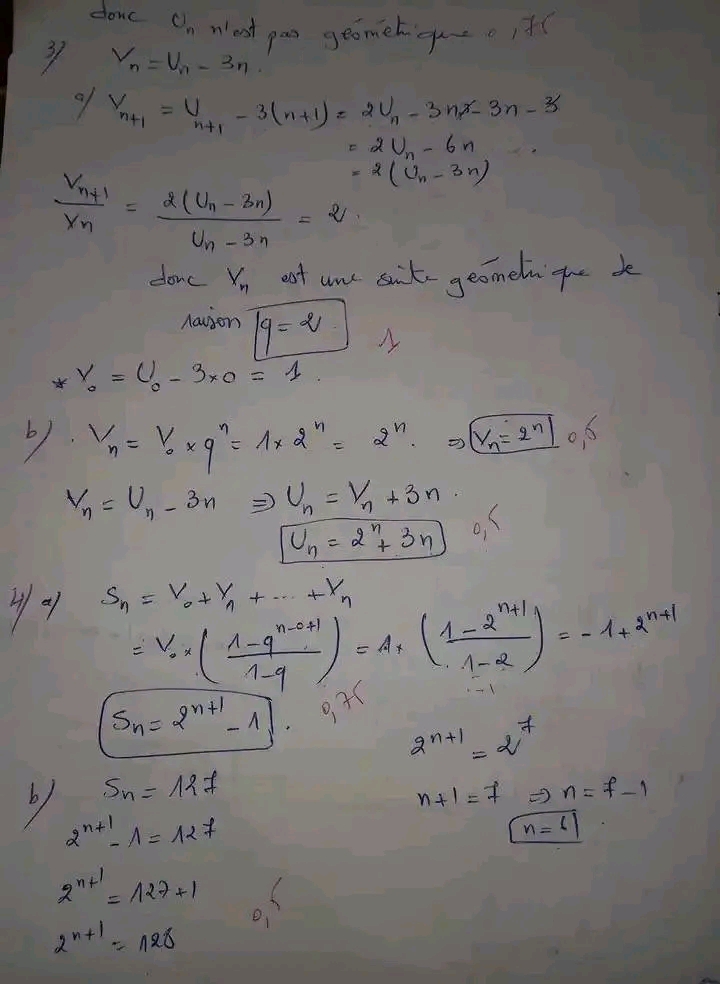 donc Un n'est pas géométrique 0,75
3) Vn = Un - 3n.
a) Vn+1 = Un+1 - 3(n+1) = 2Un - 3n+3 - 3n - 3
= 2Un - 6n
= 2(Un - 3n)
Vn+1/Vn = 2(Un - 3n)/(Un - 3n) = 2.
donc Vn est une suite géometrique de
raison q = 2 1
* V0 = U0 - 3×0 = 1.
b) . Vn = V0 × q^n = 1 × 2^n = 2^n. => Vn = 2^n 0,5
Vn = Un - 3n => Un = Vn + 3n.
Un = 2^n + 3n 0,5
4) a) Sn = V0 + V1 + ... + Vn
= V0 × ((1 - q^(n-0+1))/(1 - q)) = 1 × ((1 - 2^(n+1))/(1 - 2)) = -1 + 2^(n+1)
-1
Sn = 2^(n+1) - 1. 0,75
b) Sn = 127
2^(n+1) - 1 = 127
2^(n+1) = 127 + 1
2^(n+1) = 128 0,5
2^(n+1) = 2^7
n+1 = 7 => n = 7 - 1
n = 6